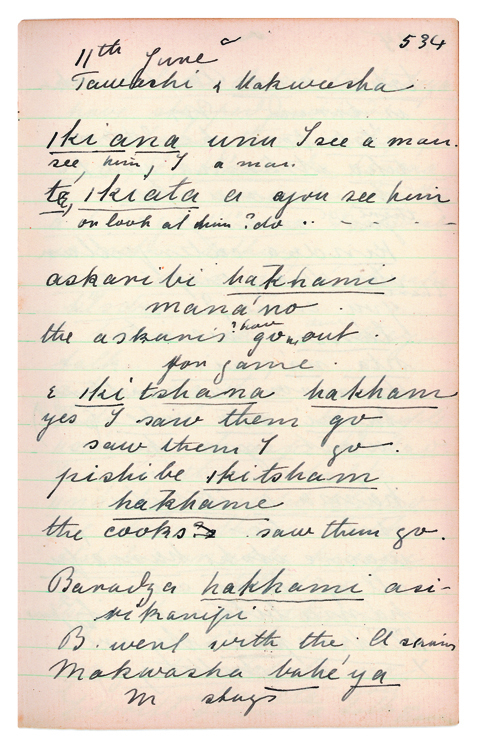 534
11th June
Tawashi & Makwasha
ıkı ana unu I see a man.
see him, I a man.
té, ıkıata a you see him
or look at him? do
askari bi hakhami
mana'no
the askaris ? have go out
for game.
ɛ ıkı tshana hakham
yes I saw them go
saw them I go.
pishi be ıkitsham
hakhame
the cooks? saw them go.
Baradza hakhami asi-
rikanipi
B. went with the Askaris
Makwasha bahe'ya
M stays